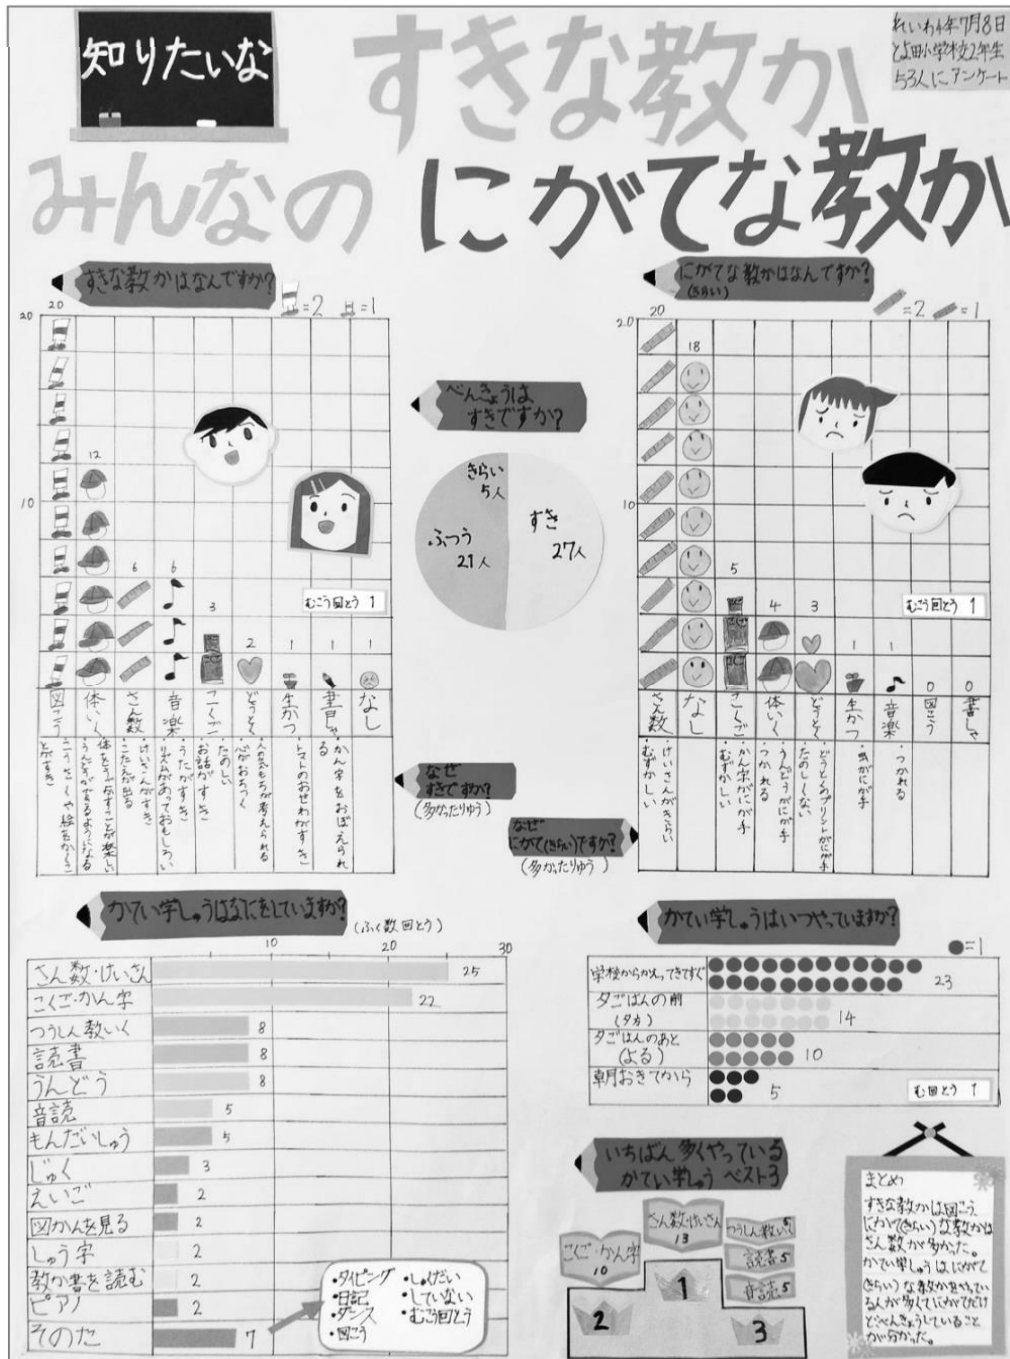 知りたいな
すきな教か
れいわ4年7月8日
とよ田小学校2年生
53人にアンケート
みんなの
にがてな教か
すきな教かはなんですか?
=2 =1
20
20
12
10
6
6
3
2
1
1
1
むこう回とう 1
図こう
体いく
さん数
音楽
こくご
どうとく
生かつ
書しゃ
なし
・こうさくや絵をかくことがすき
・体をうごかすことが楽しい
・うんどうができるようになる
・けいさんがすき
・こたえが出る
・うたがすき
・リズムがあっておもしろい
・お話がすき
・たのしい
・人の気もちが考えられる
・心がおちつく
・トマトのおせわがすき
・かん字をおぼえられる
べんきょうは
すきですか?
きらい
5人
ふつう
21人
すき
27人
なぜ
すきですか?
(多かったりゆう)
にがてな教かはなんですか?
(きらい)
=2 =1
20
20
18
10
5
4
3
1
1
0
0
むこう回とう 1
さん数
なし
こくご
体いく
どうとく
生かつ
音楽
図こう
書しゃ
・けいさんがきらい
・むずかしい
・かん字がにが手
・むずかしい
・うんどうがにが手
・つかれる
・どうとくのプリントがにが手
・たのしくない
・虫がにが手
・つかれる
なぜ
にがて(きらい)ですか?
(多かったりゆう)
かてい学しゅうはなにをしていますか?
(ふく数回とう)
10
20
30
さん数・けいさん 25
こくご・かん字 22
つうしん教いく 8
読書 8
うんどう 8
音読 5
もんだいしゅう 5
じゅく 3
えいご 2
図かんを見る 2
しゅう字 2
教か書を読む 2
ピアノ 2
そのた 7
・タイピング
・日記
・ダンス
・図こう
・しゅくだい
・していない
・むこう回とう
かてい学しゅうはいつやっていますか?
=1
学校からかえってきてすぐ 23
夕ごはんの前
(夕方)
14
夕ごはんのあと
(よる)
10
朝おきてから 5
む回とう 1
いちばん多くやっている
かてい学しゅう ベスト3
さん数・けいさん
13
こくご・かん字
10
つうしん教いく 5
読書 5
音読 5
1
2
3
まとめ
すきな教かは図こう、
にがて(きらい)な教かは
さん数が多かった。
かてい学しゅうはにがて
(きらい)な教かをやってい
る人が多くてにがてだけ
どべんきょうしていること
が分かった。